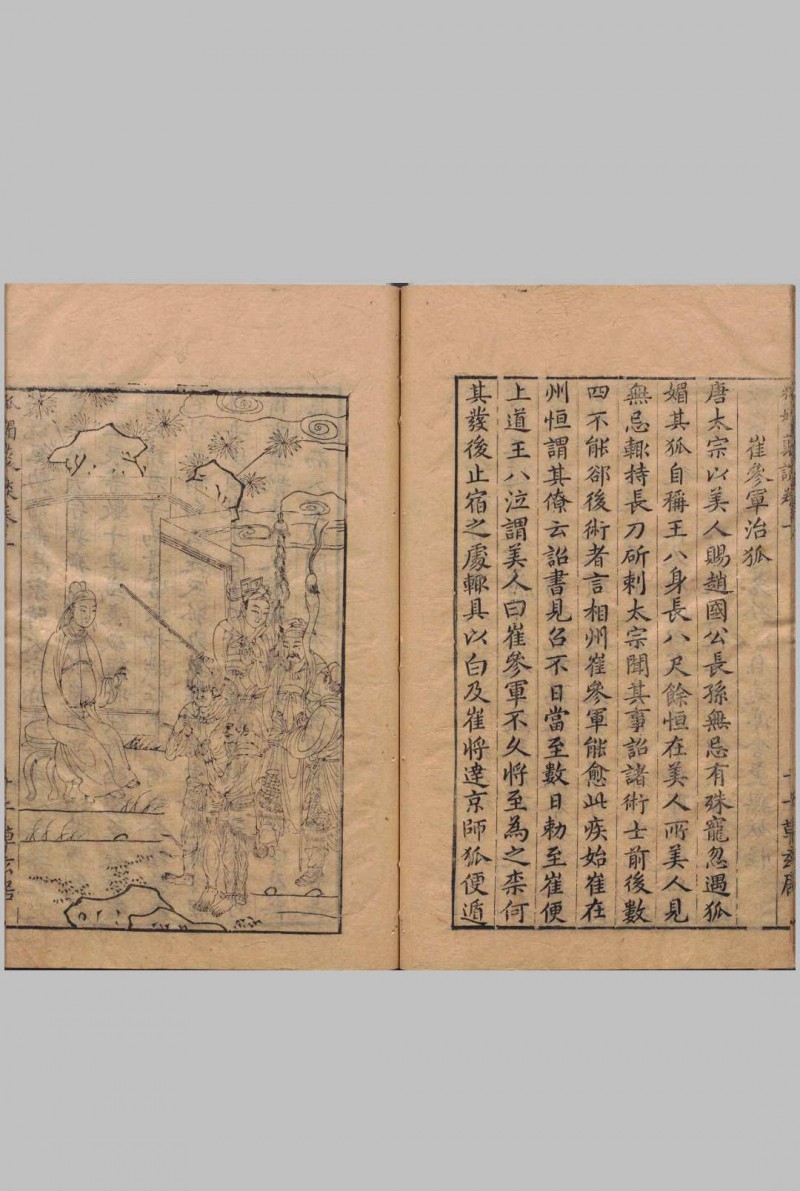 崔參軍治狐
唐太宗以美人賜趙國公長孫無忌有殊寵忽遇狐
媚其狐自稱王八身長八尺餘恒在美人所美人見
無忌輒持長刀斫刺太宗聞其事詔諸術士前後數
四不能郤後術者言相州崔參軍能愈此疾始崔在
州恒謂其僚云詔書見召不日當至數日勅至崔便
上道王八泣謂美人曰崔參軍不久將至為之柰何
其發後止宿之處輒具以白及崔將達京師狐便遁
狐媚叢談卷一
草玄居